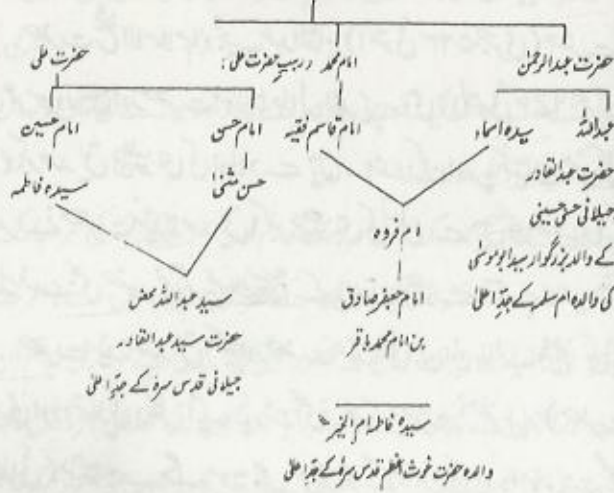 حضرت عبدالرحمٰن
امام محمد ربیب حضرت علی:
حضرت علی
عبداللہ
سیدہ اسماء
امام قاسم فقیہ
امام حسن
امام حسین
حضرت عبدالقادر
جیلانی حسنی حسینی
کے والد بزرگوار سید ابو موسٰی
کی والدہ ام سلمہ کے جدِّ اعلیٰ
حسن مثنٰی
سیدہ فاطمہ
ام فروہ
امام جعفر صادق
بن امام محمد باقر
سید عبداللہ محض
حضرت سید عبدالقادر
جیلانی قدس سرہ کے جدِّ اعلیٰ
سیدہ فاطمہ ام الخیر
والدہ حضرت غوث اعظم قدس سرہٗ کے جدِّ اعلیٰ